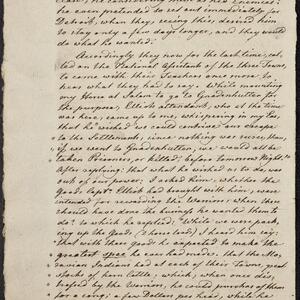 Clan, he considering men as his enemies:
he even pretended to set out immediately for
Detroit, when they, seeing this, desired him
to stay only a few days longer, and they would
do what he wanted.
Accordingly they now for the last time, cal-
led on the National Assistants of the three Towns,
to come with their Teachers once more to
hear what they had to say. While mounting
my Horse at Salem to go to Gnadenhutten for
the purpose, Elliots attendant, who at the time
was here, came up to me, whispering in my Ear,
that he wished we could contrive our escape
to the Settlements, since nothing was more true,
if we went to Gnadenhutten, we would all be
taken Prisoners, or killed, before tomorrow Night.
After replying; that what he wished us to do, was
out of our power, I asked him, whether the
Goods Capt Elliot had brought with him, were
intended for rewarding the Warriors, when they
should have done the business he wanted them to
do? to which he replied, "While we were pack-
ing up the Goods, (2 horse load), I heard him say;
that with these goods he expected to make the
greatest spec he ever had; that the Mo-
ravian Indians had at each of their Towns, great
stocks of horn Cattle, which, when once dis-
persed by the Warriors, he could purchase of them
for a song; a few Dollars per head, while he